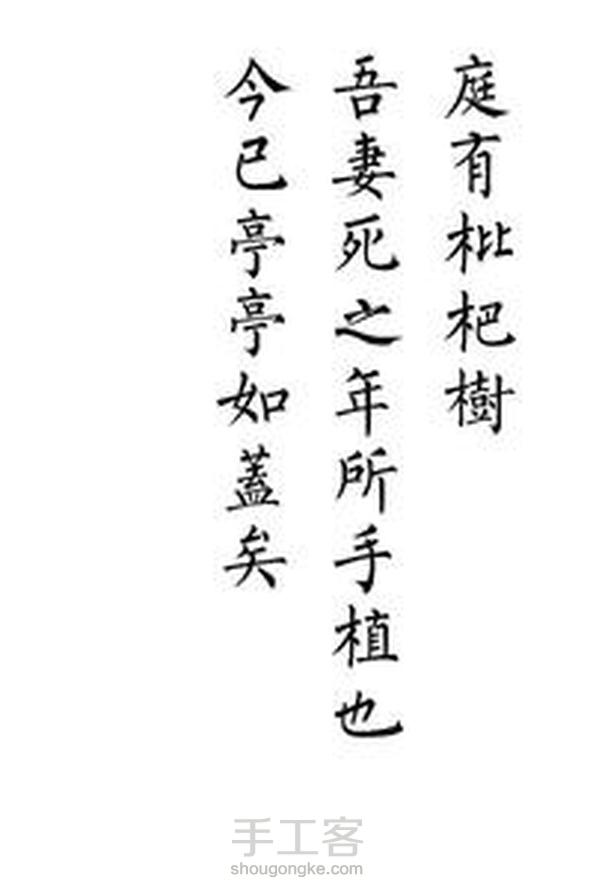 庭有枇杷樹
吾妻死之年所手植也
今已亭亭如蓋矣
手工客
shougongke.com